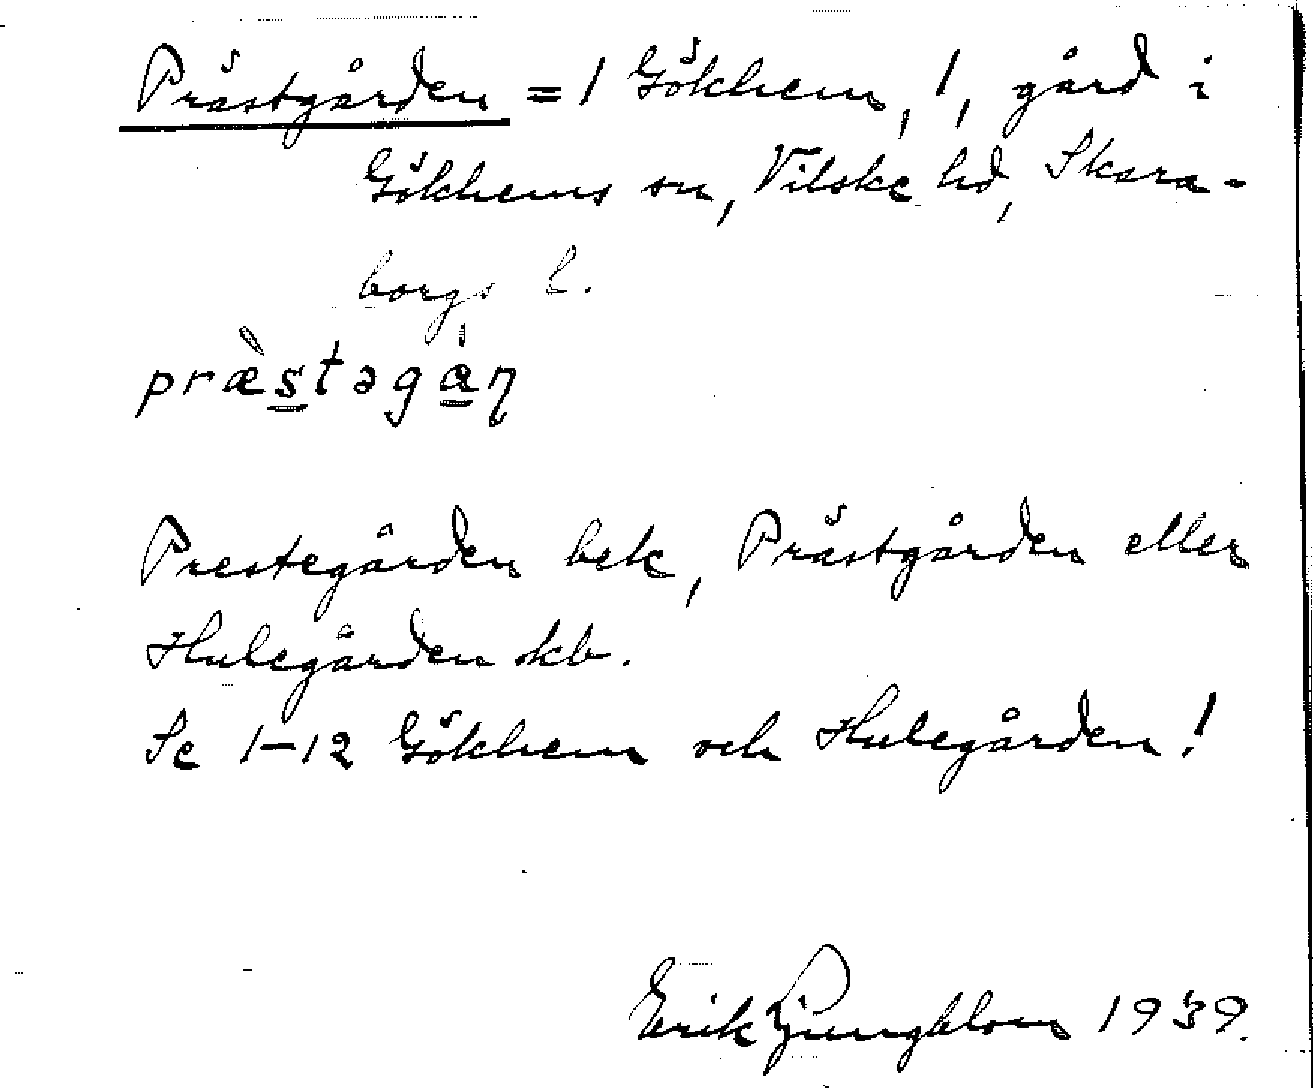 Prästgården = 1 Gökhem, 1, gård i
Gökhems sn, Vilske hd, Skara-
borgs l.
præ̀s̳təgá̳ɳ
Prestegården bek, Prästgården eller
Hulegården skb.
Se 1-12 Gökhem och Hulegården!
Erik Ljungblom 1939.